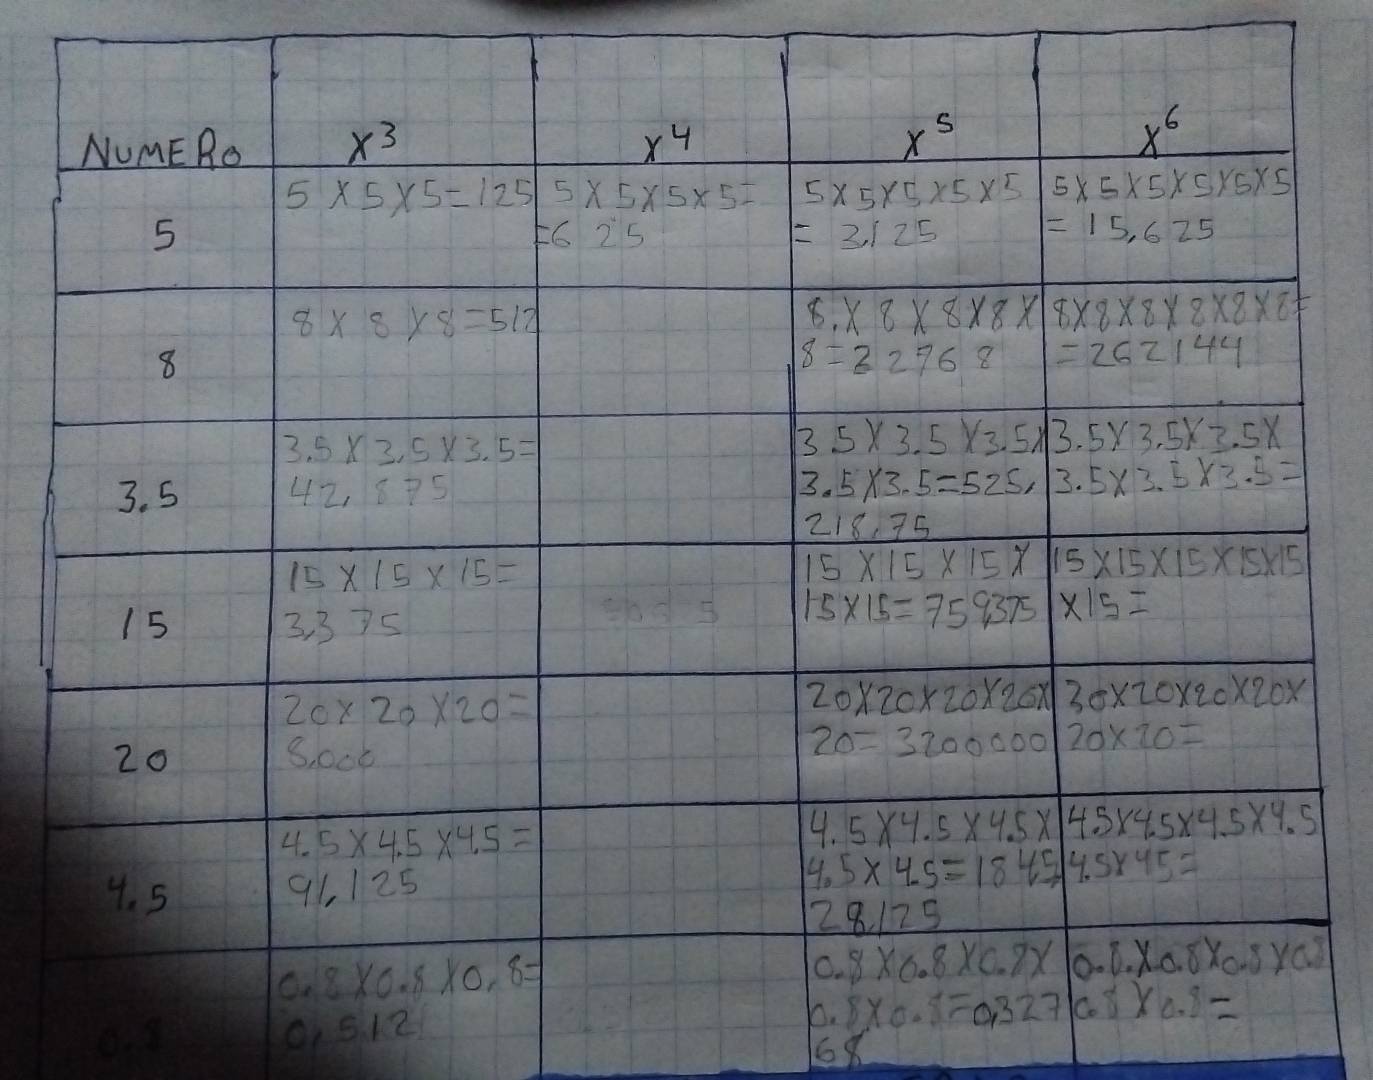 NUMERO x³ x⁴ x⁵ x⁶
5
5 x 5 x 5 = 125
5 x 5 x 5 x 5 =
= 625
5 x 5 x 5 x 5 x 5
= 3,125
5 x 5 x 5 x 5 x 5 x 5
= 15,625
8
8 x 8 x 8 = 512
8. x 8 x 8 x 8 x
8 = 32768
8 x 8 x 8 x 8 x 8 x 8 =
= 262144
3.5
3.5 x 3.5 x 3.5 =
42,875
3.5 x 3.5 x 3.5 x
3.5 x 3.5 = 525,
218.75
3.5 x 3.5 x 3.5 x
3.5 x 3.5 x 3.5 =
15
15 x 15 x 15 =
3,375
15 x 15 x 15 x
15 x 15 = 759,375
15 x 15 x 15 x 15 x 15
x 15 =
20
20 x 20 x 20 =
8,000
20 x 20 x 20 x 20 x
20 = 3200000
20 x 20 x 20 x 20 x
20 x 20 =
4.5
4.5 x 4.5 x 4.5 =
91,125
4.5 x 4.5 x 4.5 x
4.5 x 4.5 = 1845
28,125
4.5 x 4.5 x 4.5 x 4.5
4.5 x 45 =
0.8
0.8 x 0.8 x 0,8 =
0,512
0.8 x 0.8 x 0.8 x
0.8 x 0.8 = 0,327
68
0.8. x 0.8 x 0.8 x 0.8
0.8 x 0.8 =